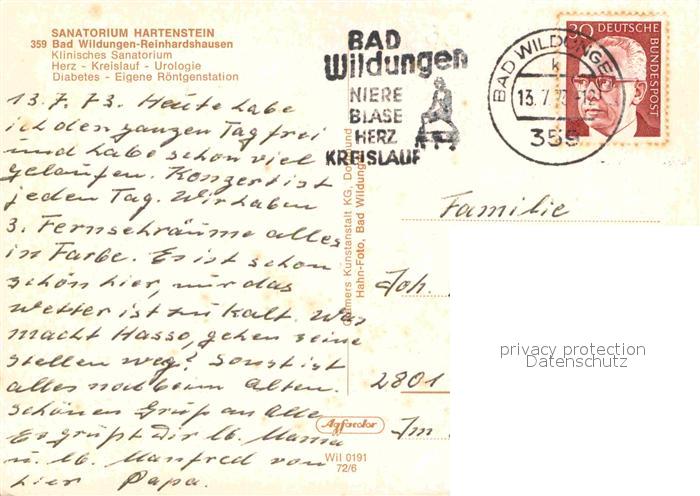 SANATORIUM HARTENSTEIN
359 Bad Wildungen-Reinhardshausen
Klinisches Sanatorium
Herz - Kreislauf - Urologie
Diabetes - Eigene Röntgenstation
13.7.73. Heute habe
ich den ganzen Tag frei
und habe schon viel
gelaufen. Konzert ist
jeden Tag. Wir haben
3. Fernsehräume alles
in Farbe. Es ist schon
schön hier, nur das
Wetter ist zu kalt. Was
macht Hasso, gehen seine
stellen weg? Sonst ist
alles noch beim Alten.
schönen Gruß an Alle
Es grüßt Dir lb. Mama
u. lb. Manfred von
hier Papa.
BAD
Wildungen
NIERE
BLASE
HERZ
KREISLAUF
BAD WILDUNGEN
k
13.7.73-12
359
30 DEUTSCHE
BUNDESPOST
Kunstanstalt KG, Dortmund
Hahn-Foto, Bad Wildungen
Agfacolor
Wil 0191
72/6
Familie
Joh.
2801
Im
privacy protection
Datenschutz